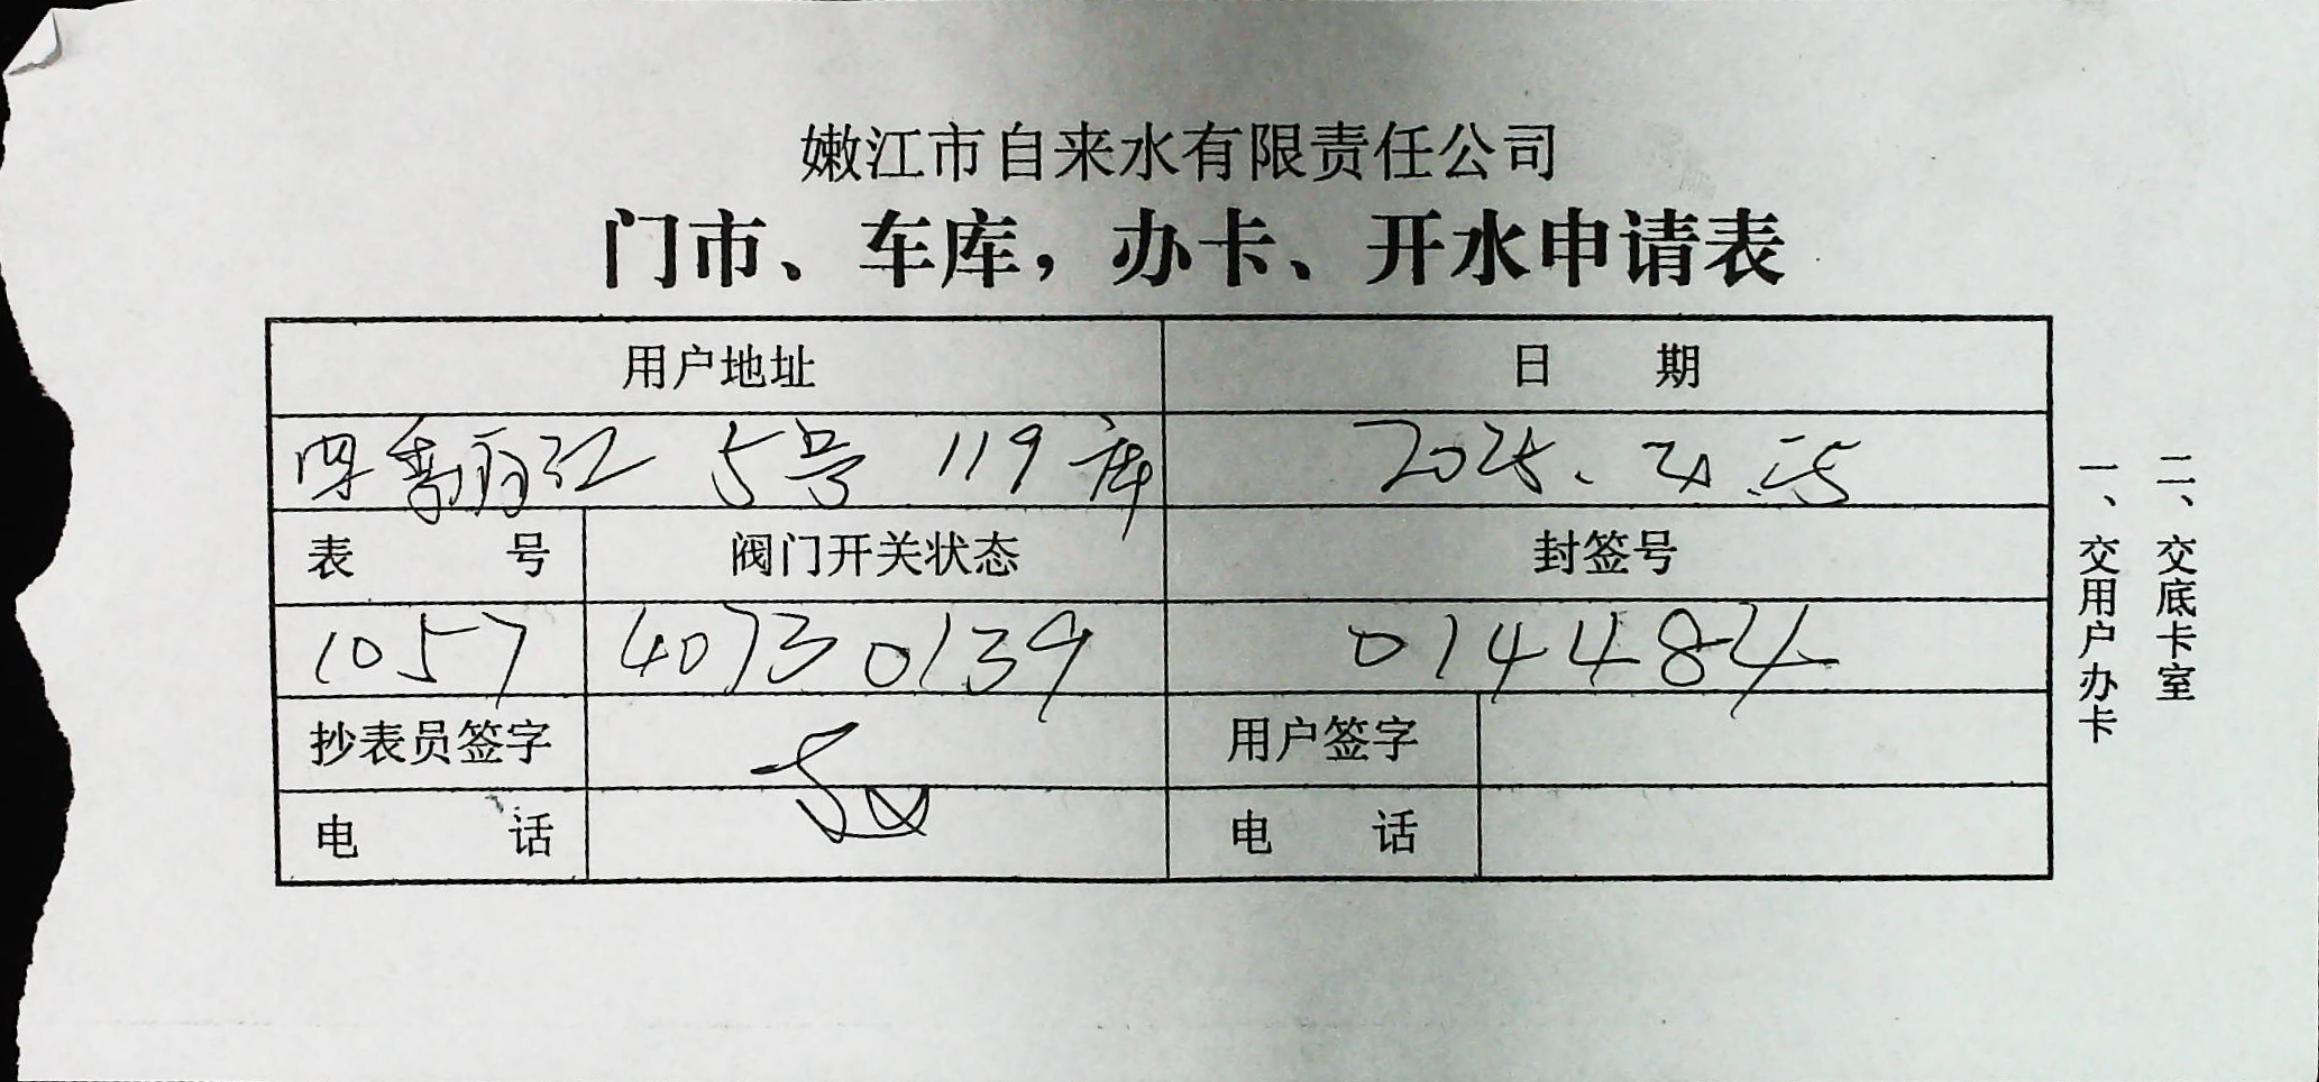 嫩江市自来水有限责任公司
门市、车库，办卡、开水申请表
用户地址 日期
四季丽江 5号 119库 2025.
表号 阀门开关状态 封签号
1057 40730139 014484
抄表员签字 用户签字
电话 电话
一、交用户办卡
二、交底卡室